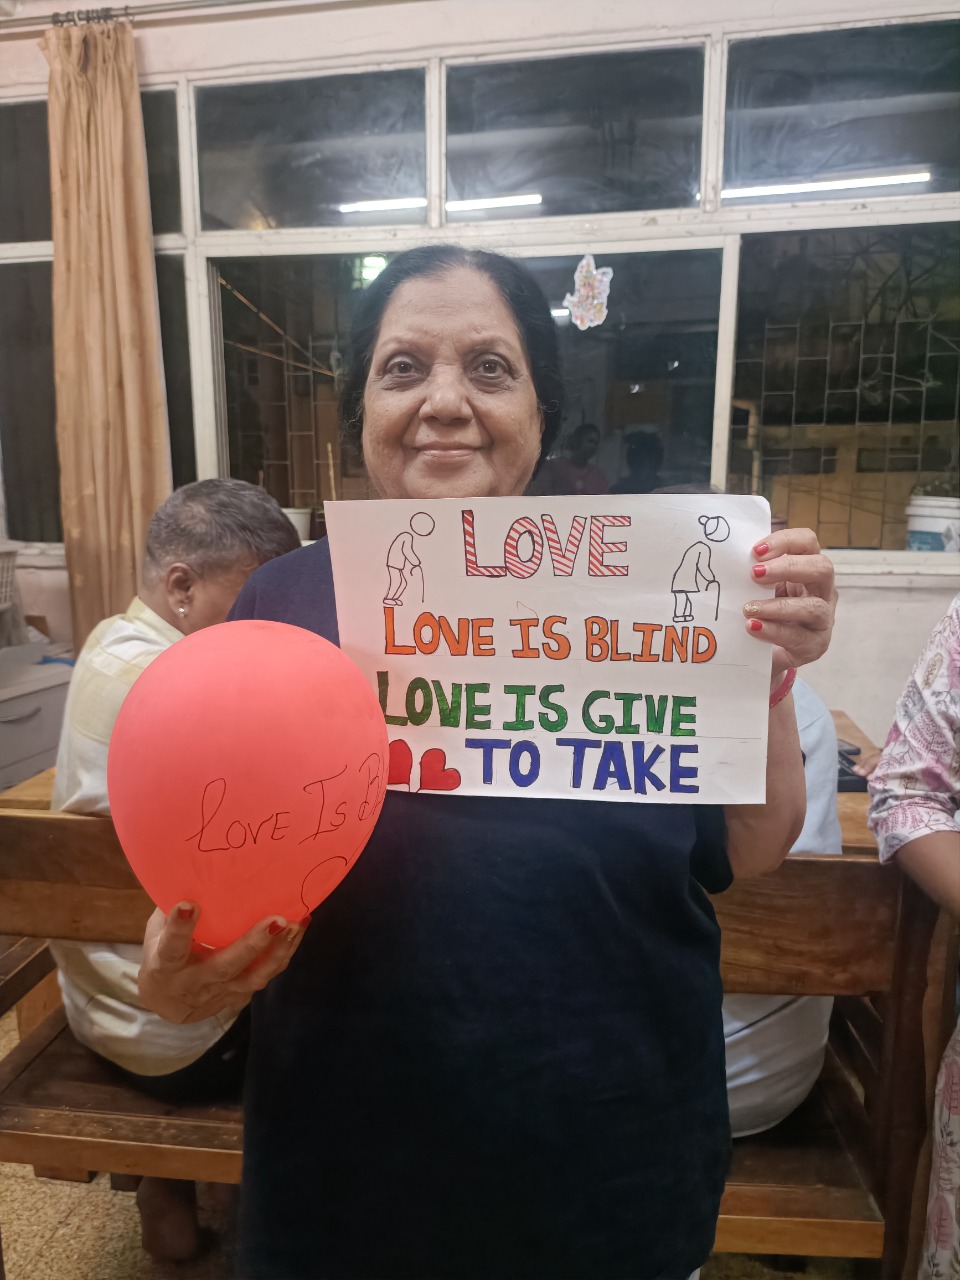 LOVE
LOVE IS BLIND
LOVE IS GIVE
TO TAKE
Love Is